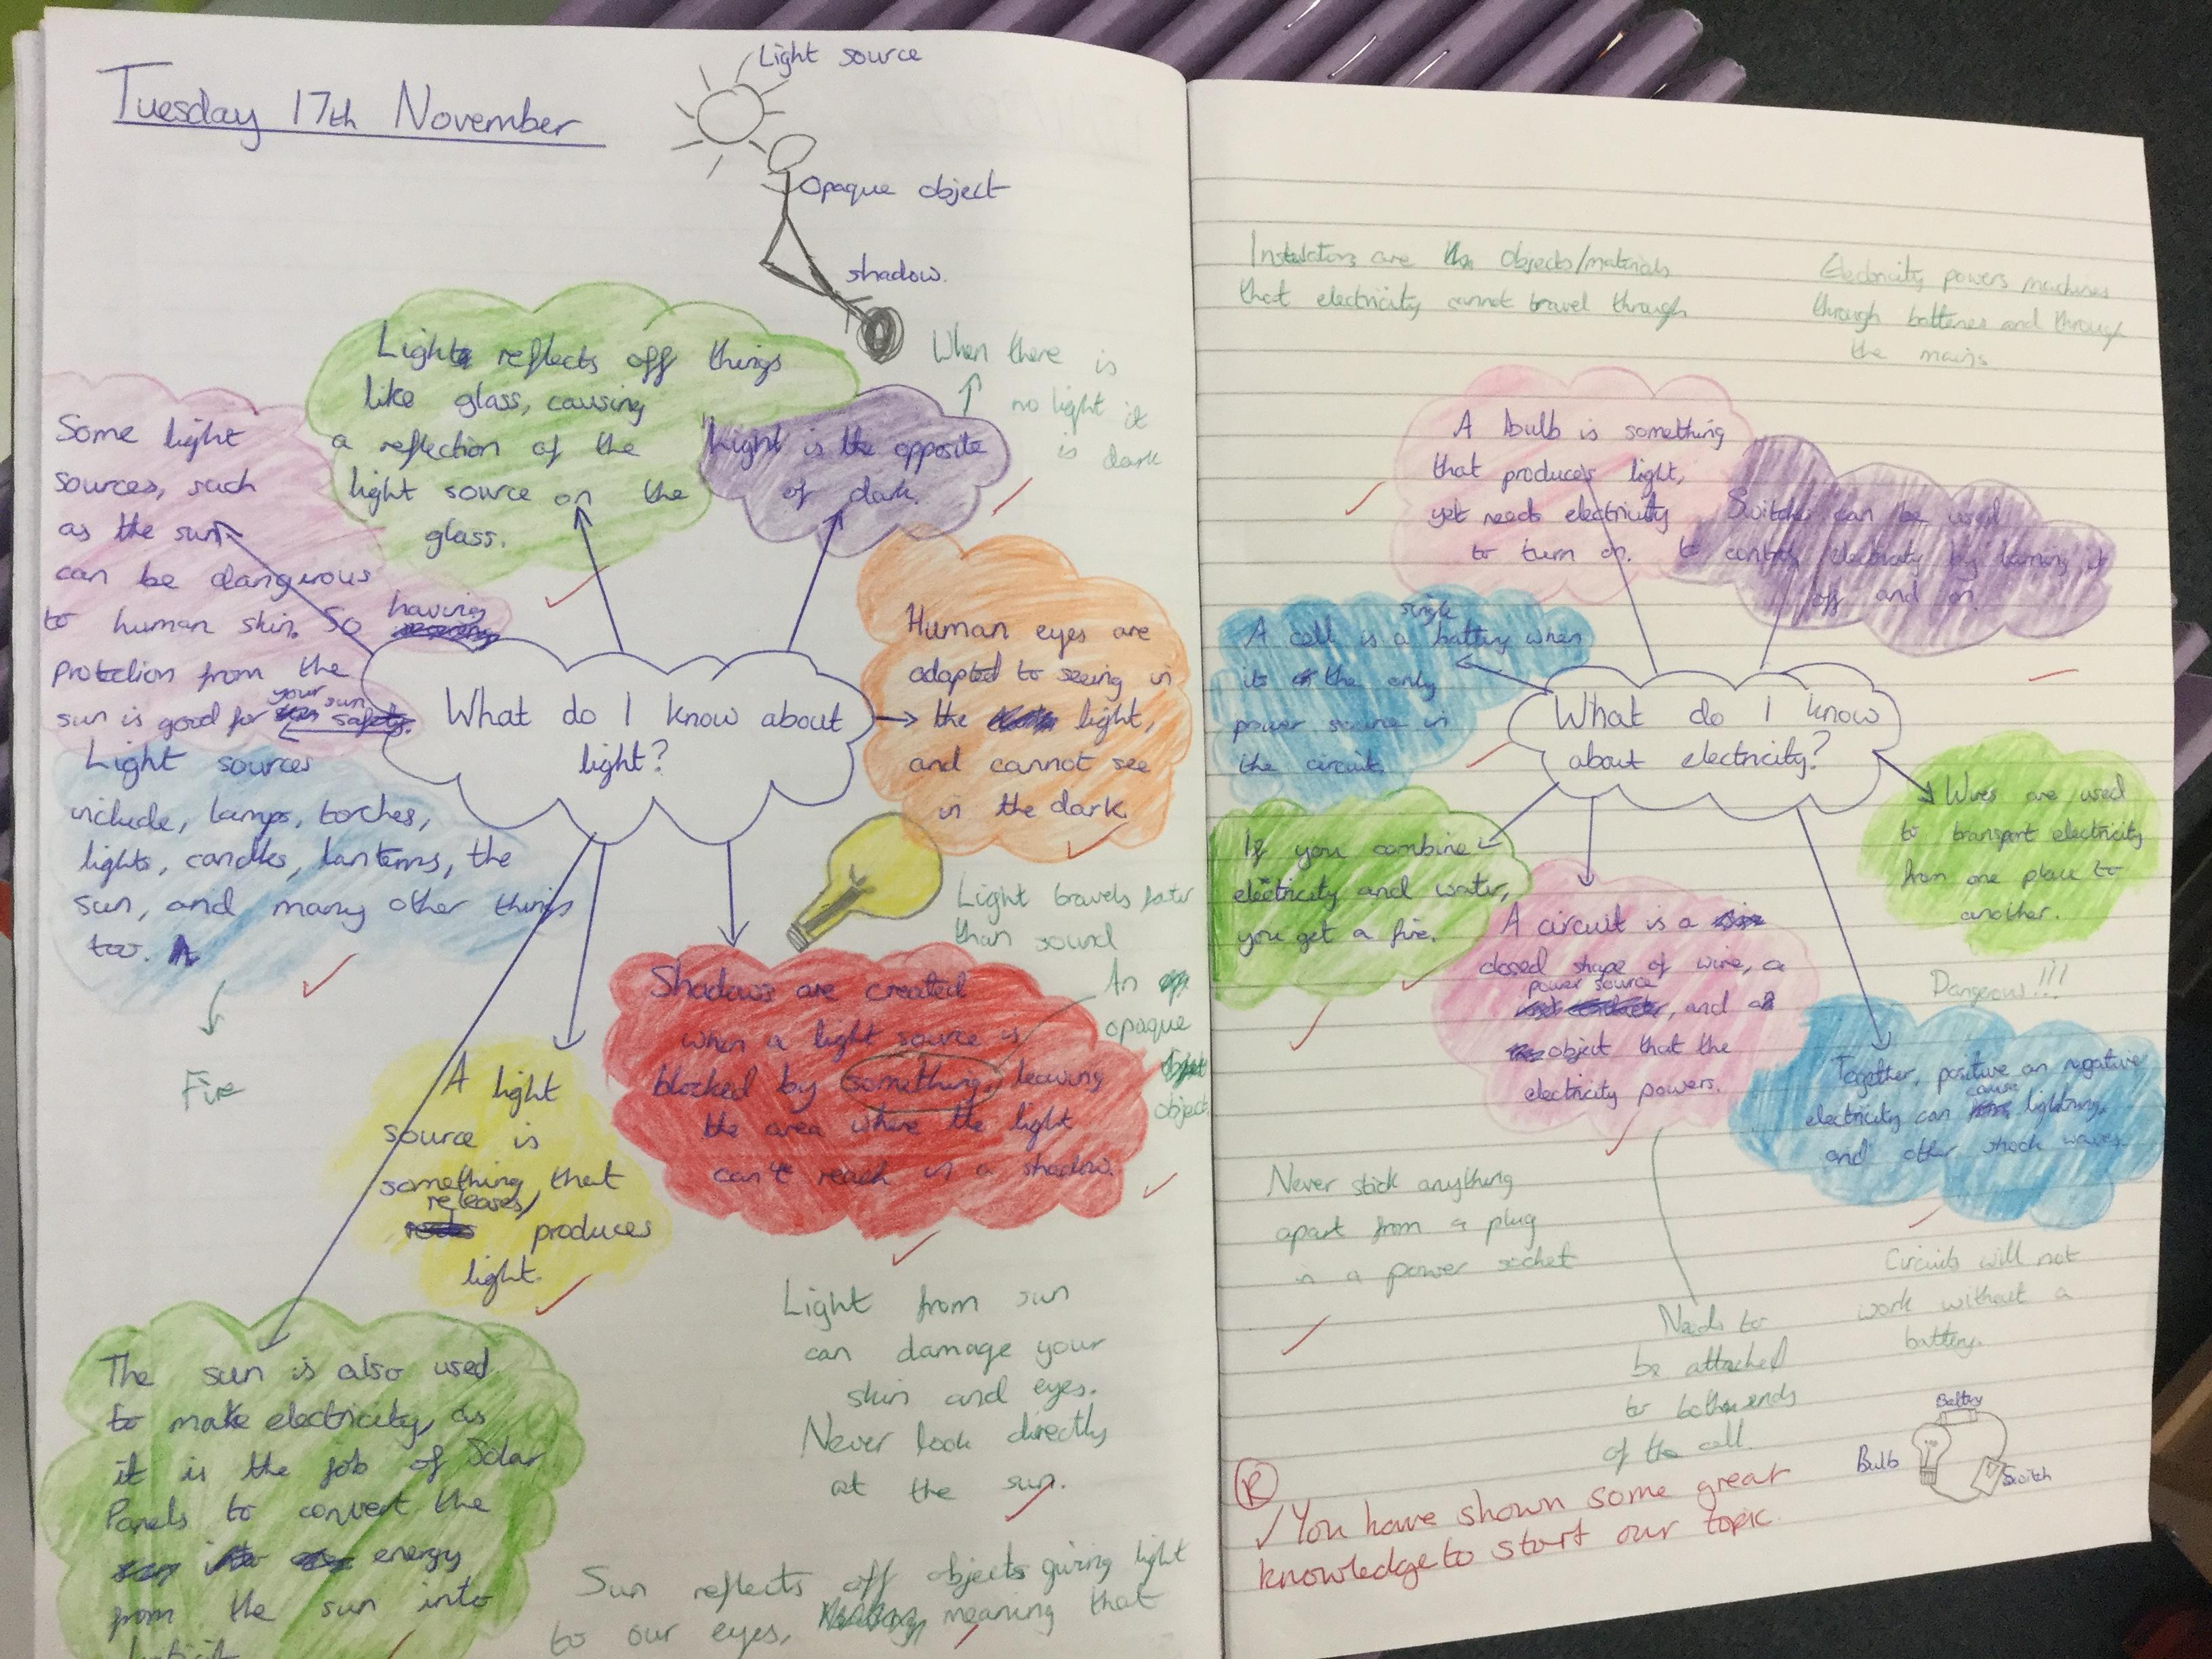 Tuesday 17th November
Light source
Opaque object
shadow.
Light reflects off things
like glass, causing
a reflection of the
light source on the
glass.
Light is the opposite
of dark.
When there is
no light it
is dark
Some light
sources, such
as the sun
can be dangerous
to human skin. So having
protection from the
sun is good for your sun
safety.
What do I know about
light?
Human eyes are
adapted to seeing in
the light,
and cannot see
in the dark.
Light sources
include, lamps, torches,
lights, candles, lanterns, the
sun, and many other things
too.
Fire
Light travels faster
than sound
Shadows are created
when a light source is
blocked by something, leaving
the area where the light
can't reach in a shadow.
An
opaque
object
A light
source is
something that
releases/
produces
light.
The sun is also used
to make electricity, as
it is the job of Solar
Panels to convert the
energy
from the sun into
Light from sun
can damage your
skin and eyes.
Never look directly
at the sun.
Sun reflects off objects giving light
to our eyes, meaning that
Insulators are objects/materials
that electricity cannot travel through
Electricity powers machines
through batteries and through
the mains
A bulb is something
that produces light,
yet needs electricity
to turn on.
Switches can be used
to control electricity by turning it
off and on.
A cell is a single battery when
its the only
power source in
the circuit.
What do I know
about electricity?
Wires are used
to transport electricity
from one place to
another.
If you combine
electricity and water,
you get a fire.
A circuit is a
closed shape of wire, a
power source
, and a
object that the
electricity powers.
Dangerous!!!
Together, positive an negative
electricity can cause lightning,
and other shock waves.
Never stick anything
apart from a plug
in a power socket
Needs to
be attached
to both ends
of the cell.
Circuits will not
work without a
battery.
Battery
Bulb
Switch
R
You have shown some great
knowledge to start our topic.